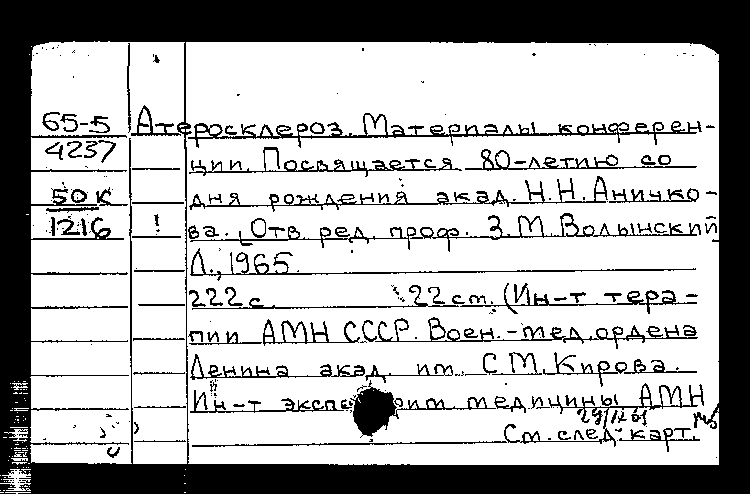 65-5 Атеросклероз. Материалы конферен-
4237 ции. Посвящается 80-летию со
50к дня рождения акад. Н.Н. Аничко-
1216 ! ва. [Отв. ред. проф. З.М. Волынский
Л., 1965.
222 с. 22 см. (Ин-т тера-
пии АМН СССР. Воен.-мед. ордена
Ленина акад. им. С.М. Кирова.
Ин-т экспе рим медицины АМН
См. след. карт.